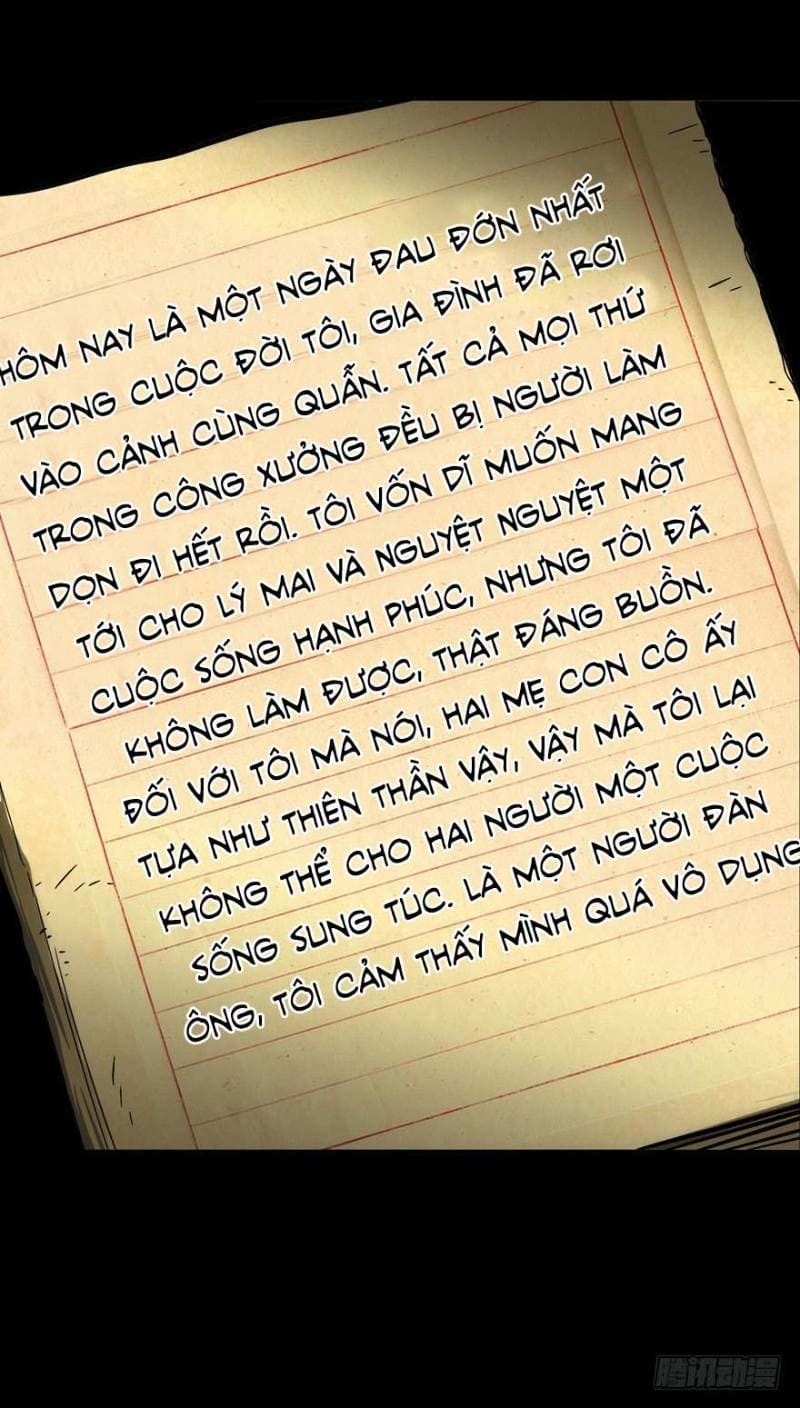 HÔM NAY LÀ MỘT NGÀY ĐAU ĐỚN NHẤT
TRONG CUỘC ĐỜI TÔI, GIA ĐÌNH ĐÃ RƠI
VÀO CẢNH CÙNG QUẪN. TẤT CẢ MỌI THỨ
TRONG CÔNG XƯỞNG ĐỀU BỊ NGƯỜI LÀM
DỌN ĐI HẾT RỒI. TÔI VỐN DĨ MUỐN MANG
TỚI CHO LÝ MAI VÀ NGUYỆT NGUYỆT MỘT
CUỘC SỐNG HẠNH PHÚC, NHƯNG TÔI ĐÃ
KHÔNG LÀM ĐƯỢC, THẬT ĐÁNG BUỒN.
ĐỐI VỚI TÔI MÀ NÓI, HAI MẸ CON CÔ ẤY
TỰA NHƯ THIÊN THẦN VẬY, VẬY MÀ TÔI LẠI
KHÔNG THỂ CHO HAI NGƯỜI MỘT CUỘC
SỐNG SUNG TÚC. LÀ MỘT NGƯỜI ĐÀN
ÔNG, TÔI CẢM THẤY MÌNH QUÁ VÔ DỤNG
腾讯动漫